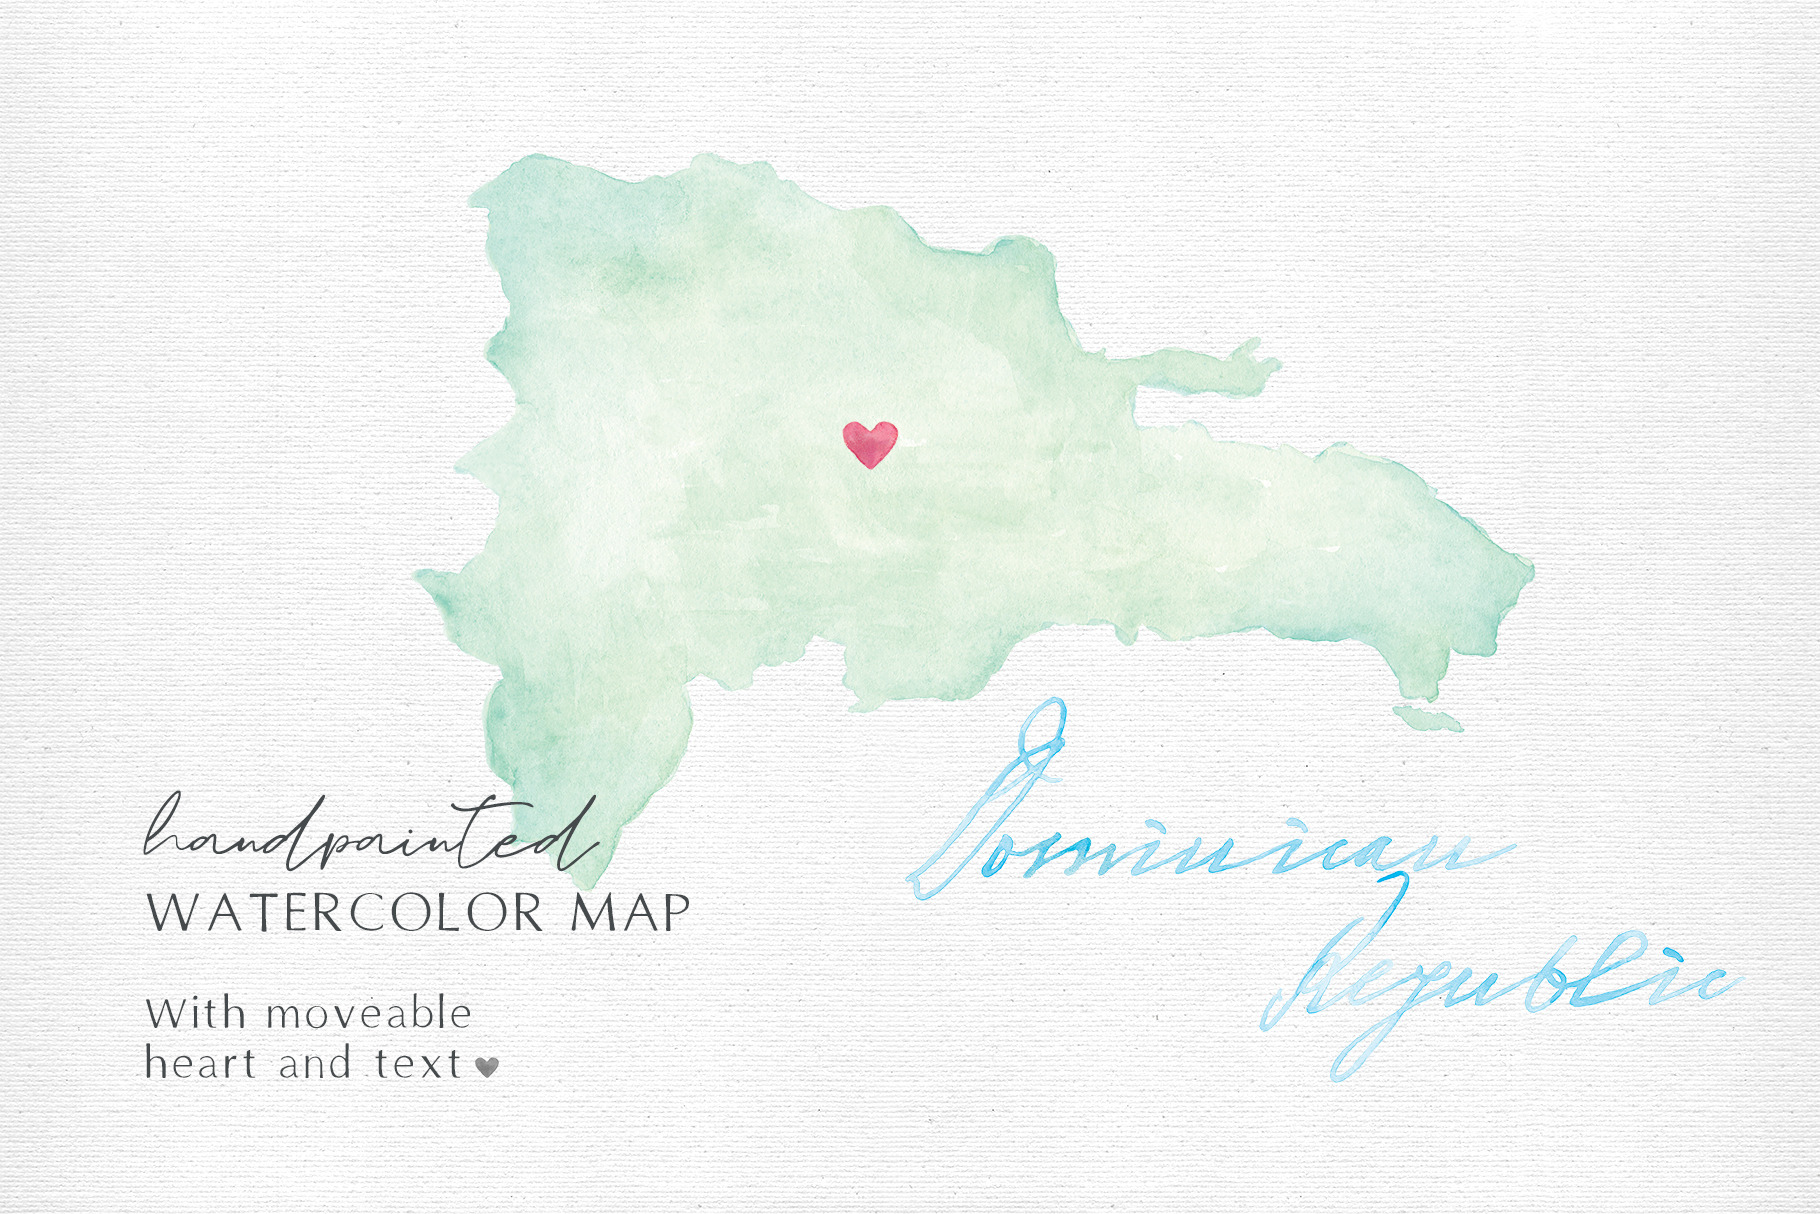 handpainted
WATERCOLOR MAP
With moveable
heart and text
Dominican
Republic